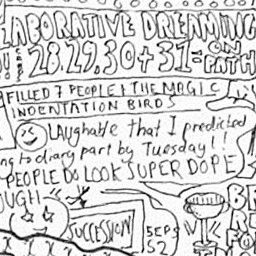 LABORATIVE DREAMING
28.29.30+31= ON PATH
FILLED 7 PEOPLE & THE MAGIC
INDENTATION BIRDS
LAUGHABLE THAT I PREDICTED
NG to diary part by Tuesday!!
PEOPLE DO LOOK SUPER DOPE
OUGH
SUCCESSION
SEPS
S2